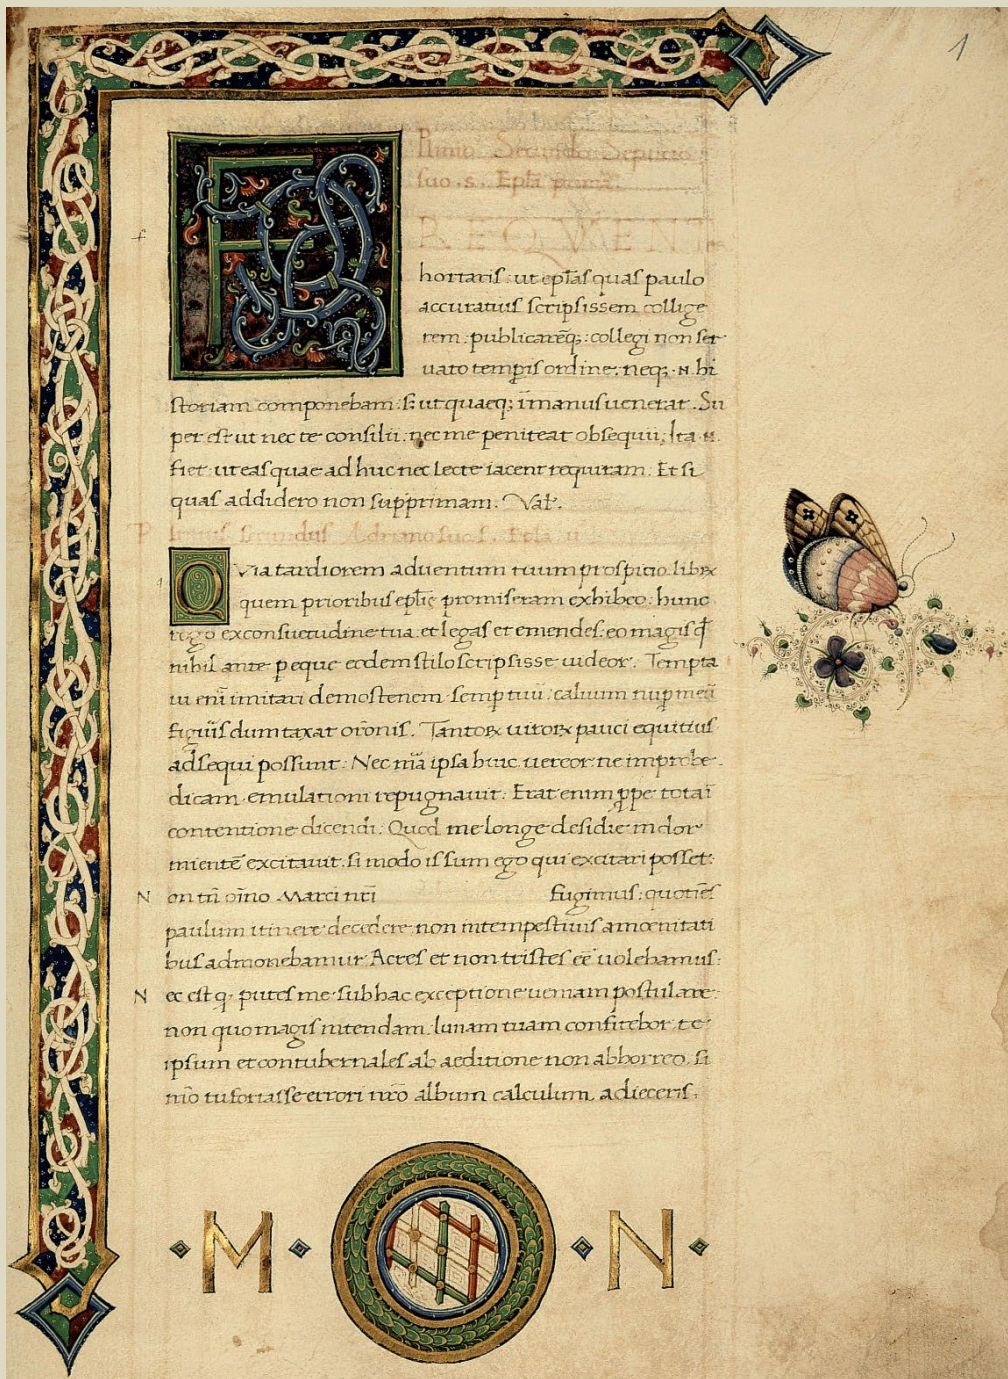 1
Plinius Secundus Septicio
suo .s. Epła prima
F
REQVENT
hortaris: ut epłas quas paulo
accuratius scripsissem collige
rem: publicarēq;: collegi non ser
uato tempis ordine: neq; .N. hi
storiam componebam: s; ut quaeq; ī manus uenerat. Su
per est ut nec te consilii: nec me peniteat obsequii; Ita .n.
fiet: ut eas quae ad huc nec lecte iacent requiram: Et si
quas addidero non supprimam. Val.
Plinius Secundus Adriano suo .s. Epła ii
Q Via tardiorem aduentum tuum prospicio. librꝝ
quem prioribus eplis promiseram exhibeo: hunc
rogo ex consuetudine tua: et legas et emendes: eo magis q̄
nihil ante peque eodem stilo scripsisse uideor. Tempta
ui enī imitari demostenem semp tuū: caluum nup meū
figuris dum taxat orōnis. Tantoꝝ uiroꝝ pauci equitius
adsequi possunt: Nec mā ipsa huic uereor ne improbe
dicam emulationi repugnauit: Erat enim ppe tota ī
contentione dicendi. Quod me longe desidie indor
mientē excitauit. si modo is sum ego qui excitari posset:
Non tn̄ oīno Marci nr̄i fugimus: quoties
paulum itinere decedere non intempestiuis amoenitati
bus admonebamur Acres et non tristes eē uolebamus:
Nec est q. putes me sub hac exceptione ueniam postulare:
non quo magis intendam. lunam tuam confitebor te
ipsum et contubernales ab aeditione non abhorreo. si
mō tu fortasse errori nr̄o album calculum adieceris.
M N